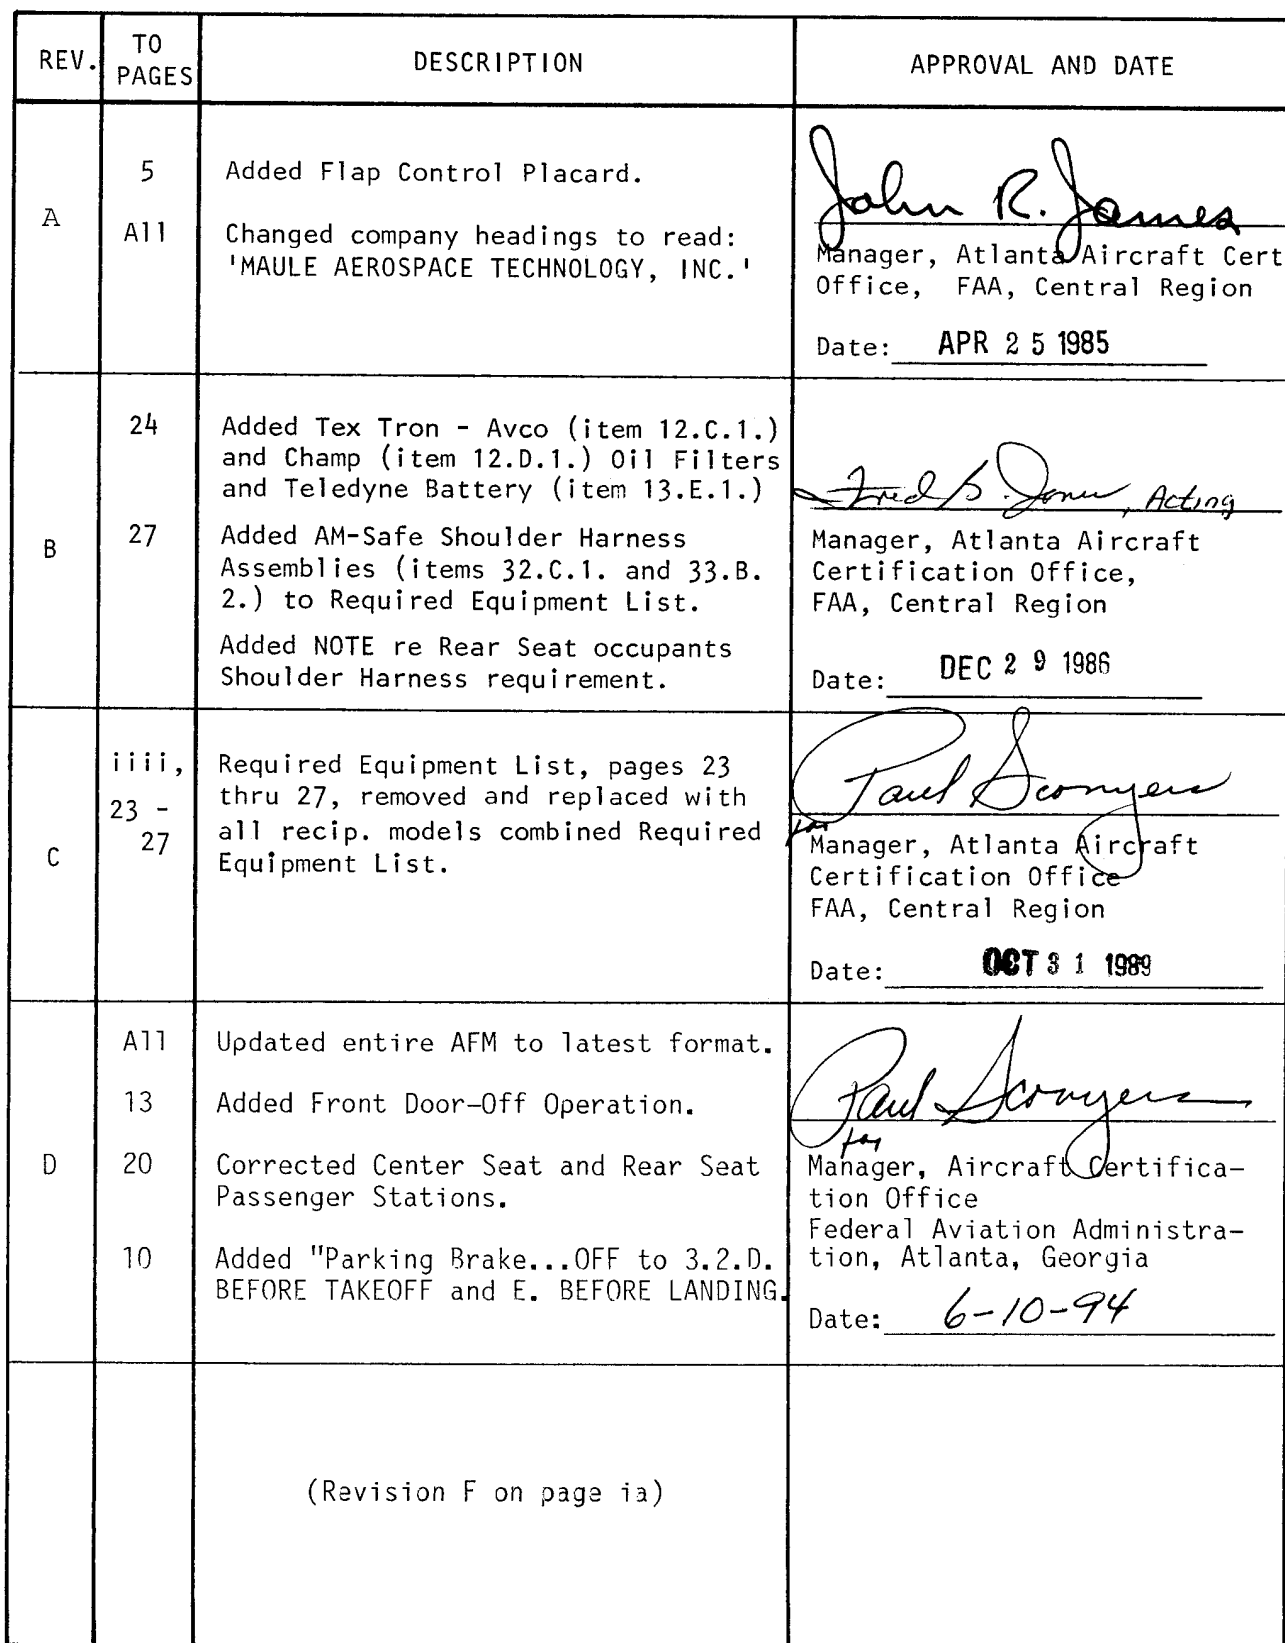 REV.
TO
PAGES
DESCRIPTION
APPROVAL AND DATE
A
5
Added Flap Control Placard.
All
Changed company headings to read:
'MAULE AEROSPACE TECHNOLOGY, INC.'
John R. James
Manager, Atlanta Aircraft Cert
Office, FAA, Central Region
Date: APR 25 1985
B
24
Added Tex Tron - Avco (item 12.C.1.)
and Champ (item 12.D.1.) Oil Filters
and Teledyne Battery (item 13.E.1.)
27
Added AM-Safe Shoulder Harness
Assemblies (items 32.C.1. and 33.B.
2.) to Required Equipment List.
Added NOTE re Rear Seat occupants
Shoulder Harness requirement.
Fred B. Jones, Acting
Manager, Atlanta Aircraft
Certification Office,
FAA, Central Region
Date: DEC 29 1986
C
iiii,
23 -
27
Required Equipment List, pages 23
thru 27, removed and replaced with
all recip. models combined Required
Equipment List.
Paul Sconyers
for
Manager, Atlanta Aircraft
Certification Office
FAA, Central Region
Date: OCT 31 1989
D
All
Updated entire AFM to latest format.
13
Added Front Door-Off Operation.
20
Corrected Center Seat and Rear Seat
Passenger Stations.
10
Added "Parking Brake...OFF to 3.2.D.
BEFORE TAKEOFF and E. BEFORE LANDING.
Paul Sconyers
for
Manager, Aircraft Certifica-
tion Office
Federal Aviation Administra-
tion, Atlanta, Georgia
Date: 6-10-94
(Revision F on page ia)